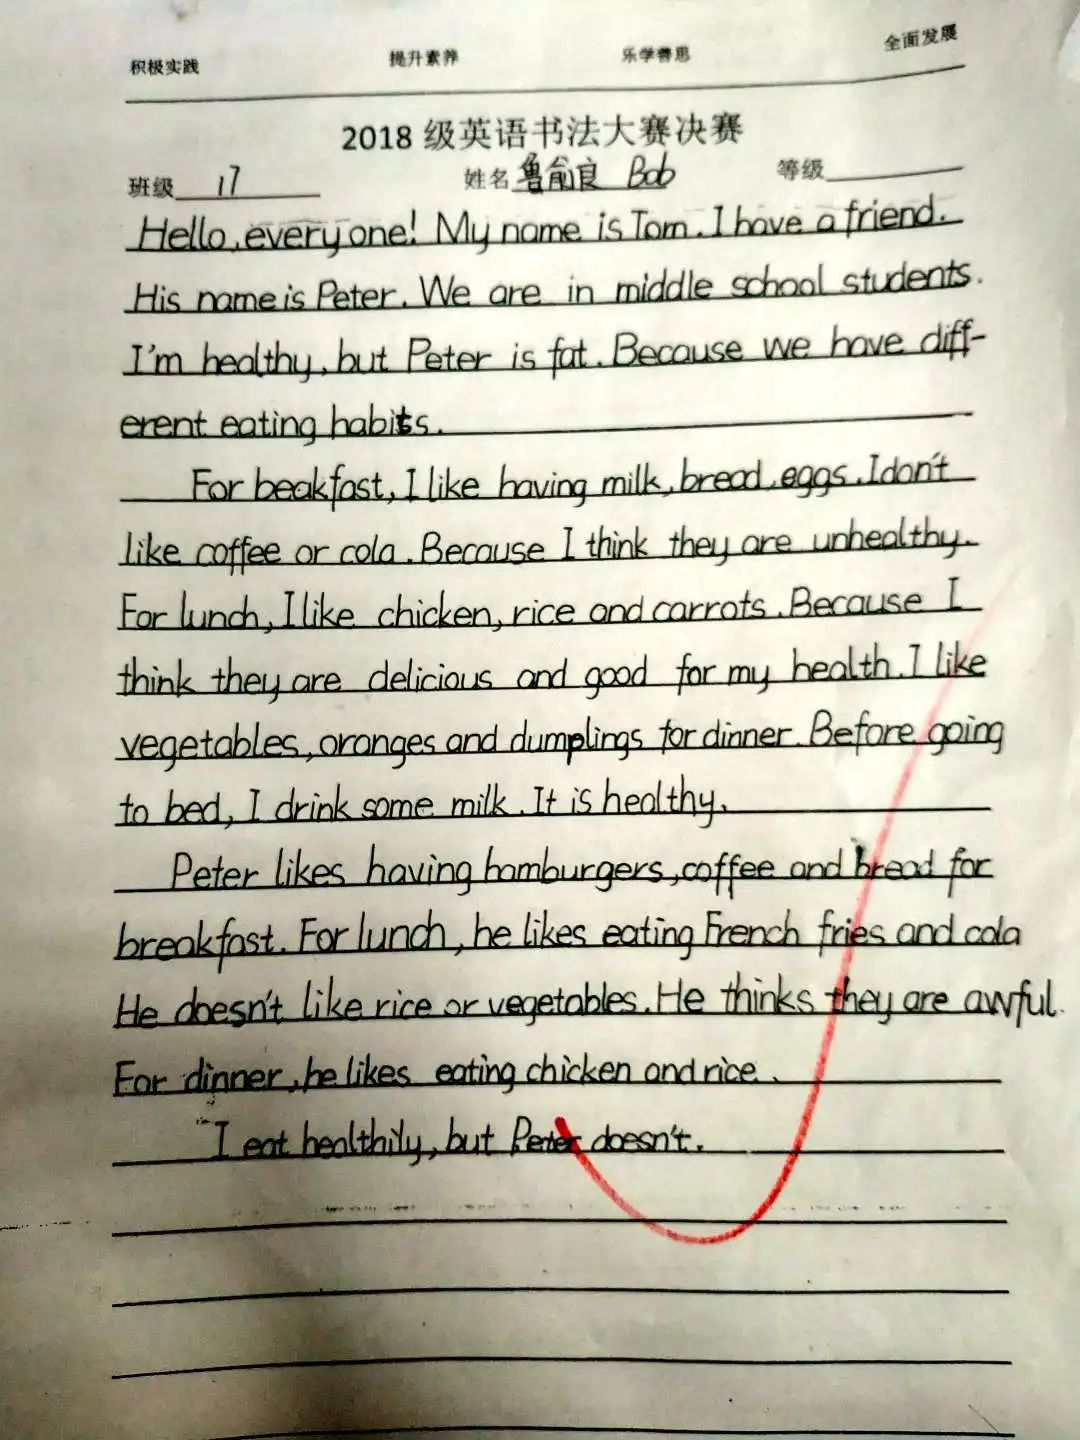 积极实践 提升素养 乐学善思 全面发展
2018 级英语书法大赛决赛
班级 17 姓名 鲁俞良 Bob 等级
Hello, everyone! My name is Tom. I have a friend.
His name is Peter. We are in middle school students.
I'm healthy, but Peter is fat. Because we have diff-
erent eating habits.
For beakfast, I like having milk, bread, eggs. I don't
like coffee or cola. Because I think they are unhealthy.
For lunch, I like chicken, rice and carrots. Because I
think they are delicious and good for my health. I like
vegetables, oranges and dumplings for dinner. Before going
to bed, I drink some milk. It is healthy.
Peter likes having hamburgers, coffee and bread for
breakfast. For lunch, he likes eating French fries and cola
He doesn't like rice or vegetables. He thinks they are awful.
For dinner, he likes eating chicken and rice.
I eat healthily, but Peter doesn't.